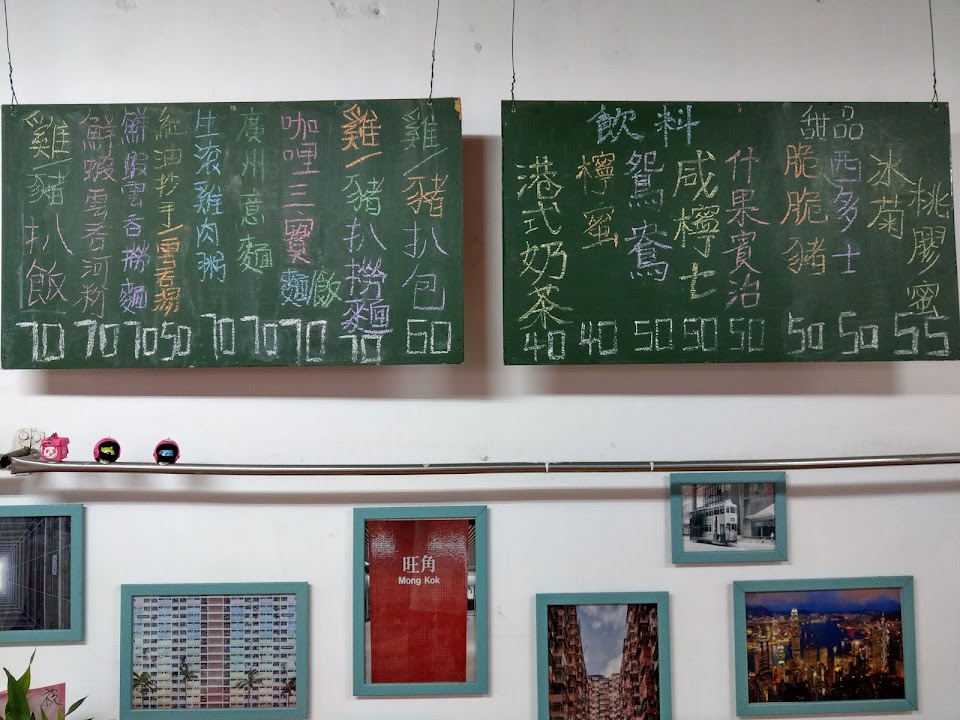 雞/豬扒飯 70
鮮蝦雲吞河粉 70
鮮蝦雲吞撈麵 70
紅油抄手/雲吞湯 50
生滾雞肉粥 70
廣州意麵 70
咖哩三寶麵/飯 70
雞/豬扒撈麵 70
雞/豬扒包 60
飲料
港式奶茶 40
檸蜜 40
鴛鴦 50
咸檸七 50
什果賓治 50
甜品
脆脆豬 50
西多士 50
冰菊桃膠蜜 55
旺角
Mong Kok